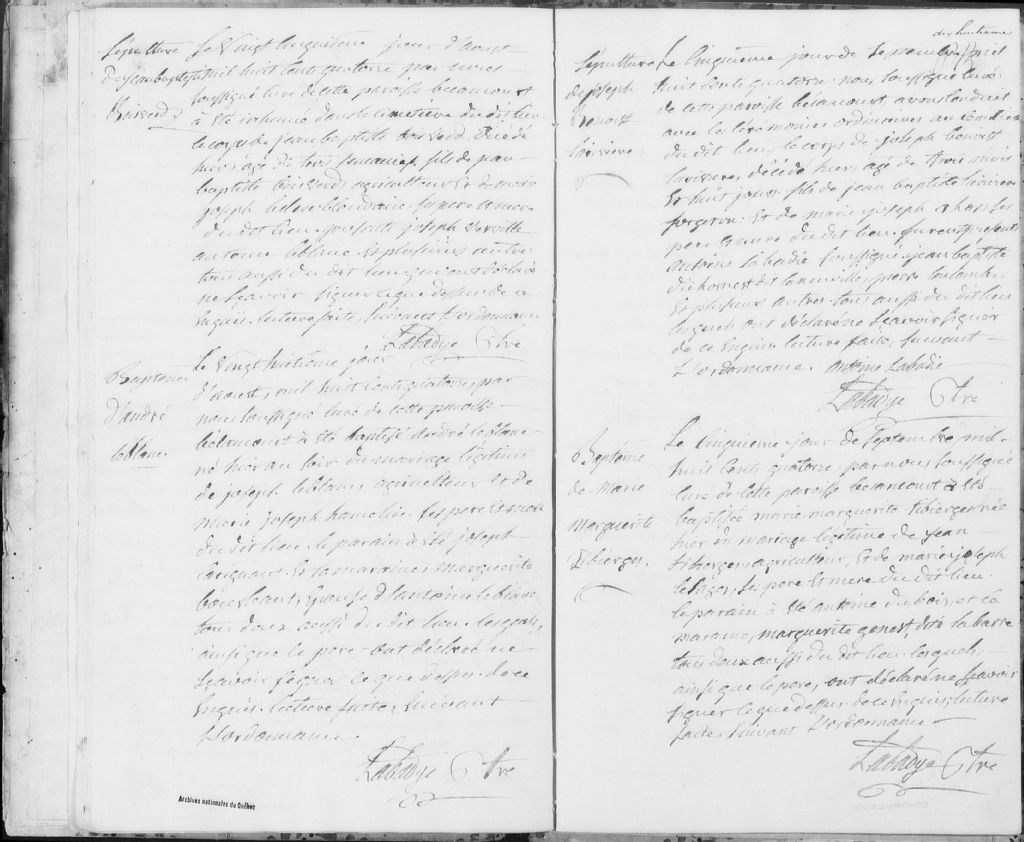 Sépulture
De jean baptiste
Boisverd
Le Vingt cinquième jour d'aoust
mil huit cent quatorze par nous
soussigné curé de cette paroisse becancourt
à été inhumé dans le cimetiere du dit lieu
le corps de jean baptiste boisverd décédé
hier, agé de trois semaines, fils de jean
baptiste boisverd, agriculteur et de marie
joseph blondain ses pere et mere
du dit lieu. présents joseph Derville
antoine leblanc et plusieurs autres
tous aussi du dit lieu qui ont déclaré
ne scavoir signer ce que dessus de ce
enquis. lecture faite, suivant l'ordonnance
Labadye Ptre
Baptême
d'andré
leblanc.
Le vingt huitième jour
d'aoust, mil huit cent quatorze, par
nous soussigné curé de cette paroisse
bécancourt à été baptisé andré leblanc
né hier au soir du mariage légitime
de joseph leblanc, agriculteur et de
marie joseph hamelin. ses pere et mere
du dit lieu. le parain à été joseph
et la maraine marguerite
épouse d'antoine leblanc
tous deux aussi du dit lieu. lesquels,
ainsi que le pere ont déclaré ne
scavoir signer ce que dessus. de ce
enquis. lecture faite, suivant
l'ordonnance.
Labadye Ptre
Archives nationales du Québec
dix huitieme
Sépulture
de joseph
Benoist
Lariviere.
Le Cinquième jour de Septembre mil
huit cents quatorze nous soussigné curé
de cette paroisse bécancourt, avons conduit
avec les cérémonies ordinaires au cimetiere
du dit lieu le corps de joseph benoist
lariviere, décédé hier, agé de trois mois
et huit jours, fils de jean baptiste lariviere
forgeron et de marie joseph ses
pere et mere du dit lieu. furent présents
antoine Labadie soussigné, jean baptiste
dit lanneville, pierre
et plusieurs autres tous aussi du dit lieu
lesquels ont déclaré ne scavoir signer
de ce enquis lecture faite, suivant
l'ordonnance. Antoine Labadie
Labadye Ptre
Baptême
de Marie
Marguerite
Tiberge.
Le Cinquieme jour de septembre mil
huit cents quatorze, par nous, soussigné
curé de cette paroisse becancourt à été
baptisée marie marguerite tiberge née
hier du mariage légitime de jean
tiberge, agriculteur, et de marie joseph
ses pere et mere du dit lieu.
le parain à été antoine dubois, et la
maraine, marguerite genest, dite labarre
tous deux aussi du dit lieu. lesquels,
ainsi que le pere, ont déclaré ne scavoir
signer ce que dessus de ce enquis, lecture
faite, suivant l'ordonnance
Labadye Ptre